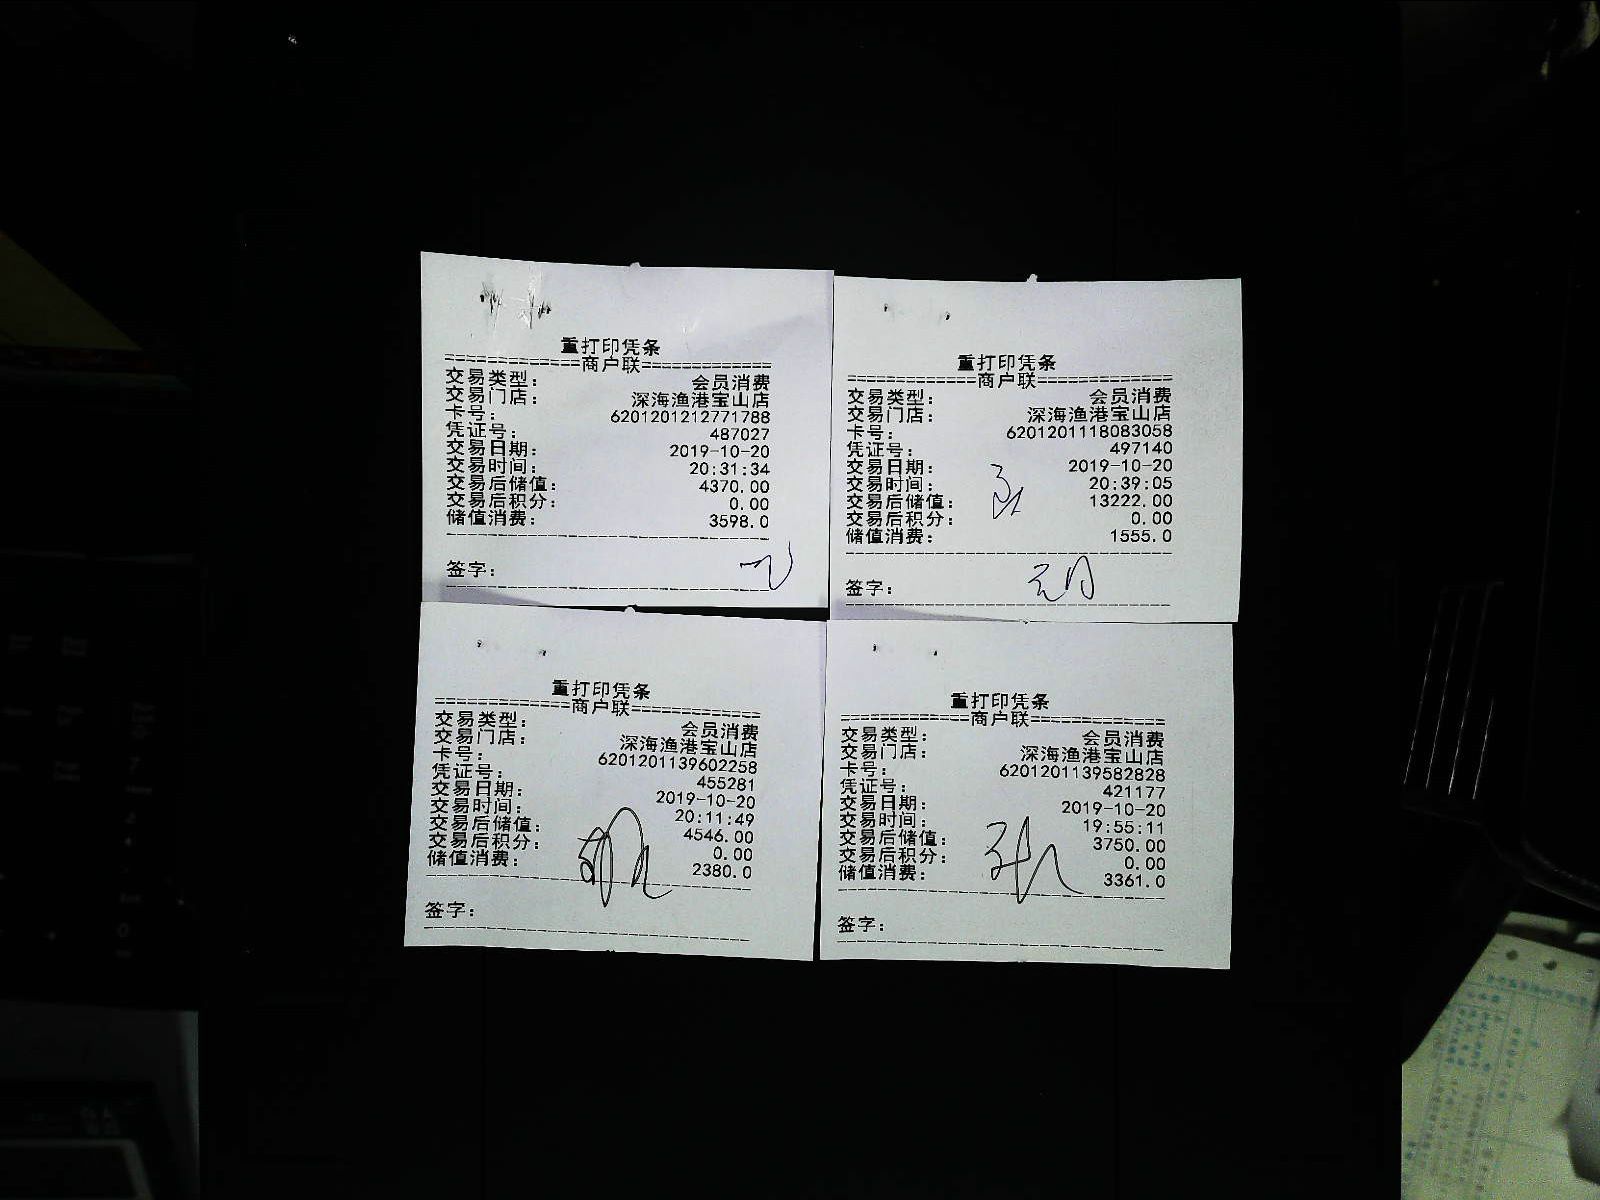 重打印凭条
==============商户联==============
交易类型： 会员消费
交易门店： 深海渔港宝山店
卡号： 6201201212771788
凭证号： 487027
交易日期： 2019-10-20
交易时间： 20:31:34
交易后储值： 4370.00
交易后积分： 0.00
储值消费： 3598.0
签字：
重打印凭条
==============商户联==============
交易类型： 会员消费
交易门店： 深海渔港宝山店
卡号： 6201201118083058
凭证号： 497140
交易日期： 2019-10-20
交易时间： 20:39:05
交易后储值： 13222.00
交易后积分： 0.00
储值消费： 1555.0
签字：
重打印凭条
==============商户联==============
交易类型： 会员消费
交易门店： 深海渔港宝山店
卡号： 6201201139602258
凭证号： 455281
交易日期： 2019-10-20
交易时间： 20:11:49
交易后储值： 4546.00
交易后积分： 0.00
储值消费： 2380.0
签字：
重打印凭条
==============商户联==============
交易类型： 会员消费
交易门店： 深海渔港宝山店
卡号： 6201201139582828
凭证号： 421177
交易日期： 2019-10-20
交易时间： 19:55:11
交易后储值： 3750.00
交易后积分： 0.00
储值消费： 3361.0
签字：